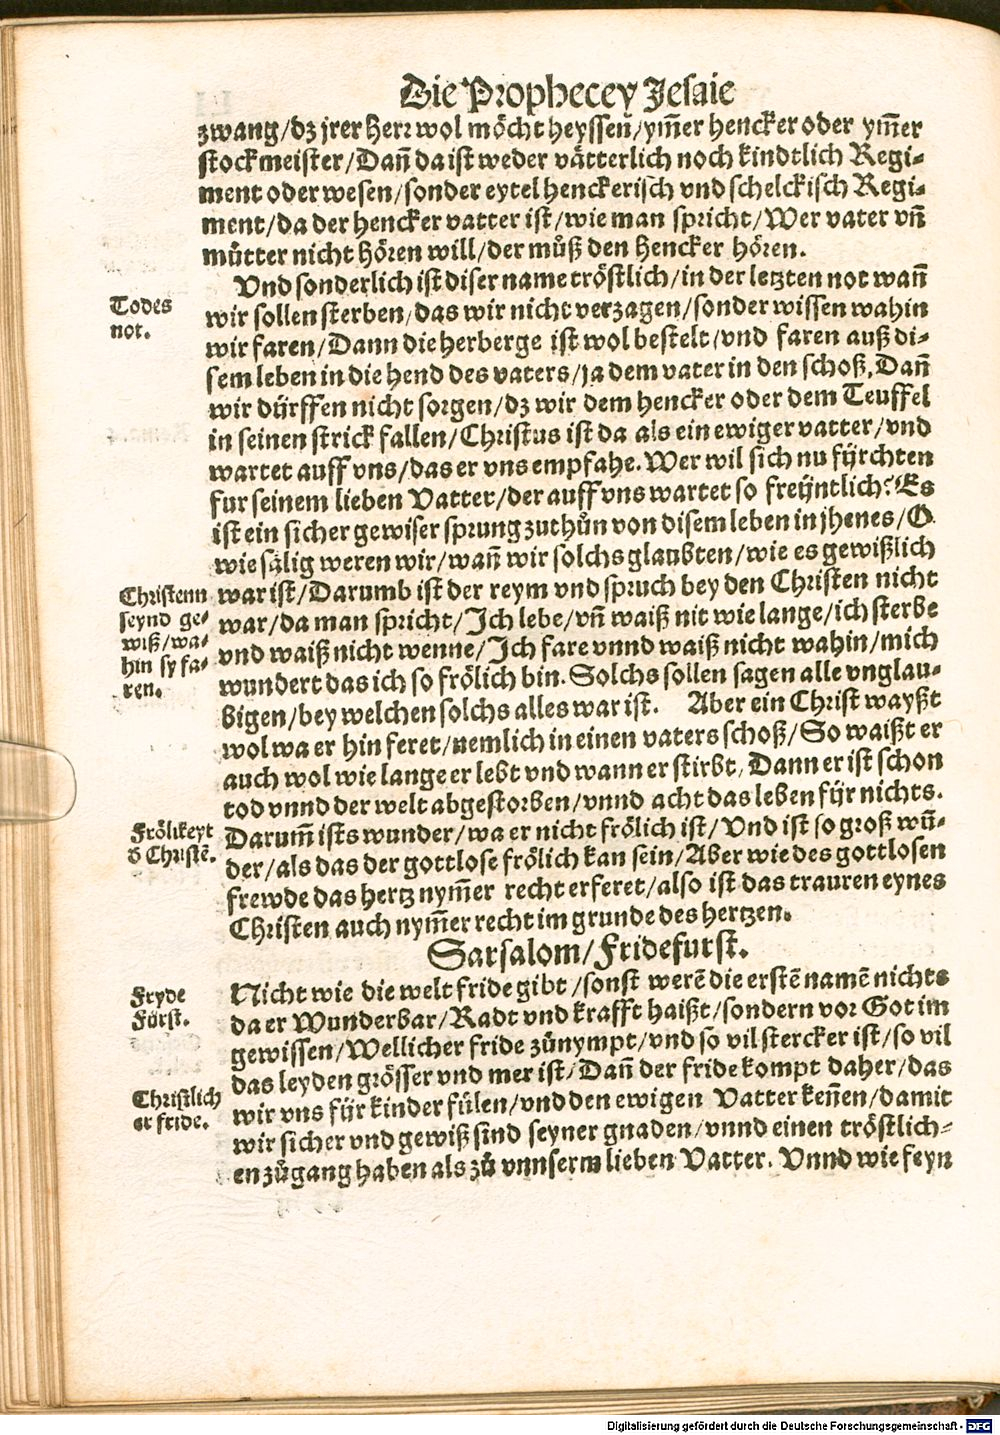 Die Prophecey Jesaie
zwang/dz jrer Herr wol möcht heyssen/ym̃er hencker oder ym̃er
stockmeister/Dañ da ist weder vätterlich noch kindtlich Regi-
ment oder wesen/sonder eytel henckerisch vnd schelckisch Regi-
ment/da der hencker vatter ist/wie man spricht/Wer vater vñ
můtter nicht hören will/der můß den Hencker hören.
Vnd sonderlich ist diser name tröstlich/in der letzten not wañ
Todes
not.
wir sollen sterben/das wir nicht verzagen/sonder wissen wahin
wir faren/Dann die herberge ist wol bestelt/vnd faren auß di-
sem leben in die hend des vaters/ja dem vater in den schoß, Dañ
wir dürffen nicht sorgen/dz wir dem hencker oder dem Teuffel
in seinen strick fallen/Christus ist da als ein ewiger vatter/vnd
wartet auff vns/das er vns empfahe. Wer wil sich nu fürchten
fur seinem lieben Vatter/der auff vns wartet so freüntlich? Es
ist ein sicher gewiser sprung zuthůn von disem leben in jhenes/O
wie sälig weren wir/wañ wir solchs glaubten/wie es gewißlich
Christenn
seynd ge-
wiß/wa-
hin sy fa-
ren.
war ist/Darumb ist der reym vnd spruch bey den Christen nicht
war/da man spricht/Ich lebe/vñ waiß nit wie lange/ich sterbe
vnd waiß nicht wenne/Ich fare vnnd waiß nicht wahin/mich
wundert das ich so frölich bin. Solchs sollen sagen alle vnglau-
bigen/bey welchen solchs alles war ist. Aber ein Christ wayßt
wol wa er hin feret/nemlich in einen vaters schoß/So waißt er
auch wol wie lange er lebt vnd wann er stirbt, Dann er ist schon
tod vnnd der welt abgestorben/vnnd acht das leben für nichts.
Frölikeyt
d Christẽ.
Darum̃ ists wunder/wa er nicht frölich ist/Vnd ist so groß wũ-
der/als das der gottlose frölich kan sein/Aber wie des gottlosen
frewde das hertz nym̃er recht erferet/also ist das trauren eynes
Christen auch nym̃er recht im grunde des hertzen.
Sarsalom/Fridefurst.
Fryde
Fürst.
Nicht wie die welt fride gibt/sonst werẽ die erstẽ namẽ nichts
da er Wunderbar/Radt vnd krafft haißt/sondern vor Got im
gewissen/Wellicher fride zůnympt/vnd so vil stercker ist/so vil
das leyden grösser vnd mer ist/Dañ der fride kompt daher/das
Christlich
er fride.
wir vns für kinder fülen/vnd den ewigen Vatter keñen/damit
wir sicher vnd gewiß sind seyner gnaden/vnnd einen tröstlich-
en zůgang haben als zů vnnserm lieben Vatter. Vnnd wie seyn
Digitalisierung gefördert durch die Deutsche Forschungsgemeinschaft - DFG